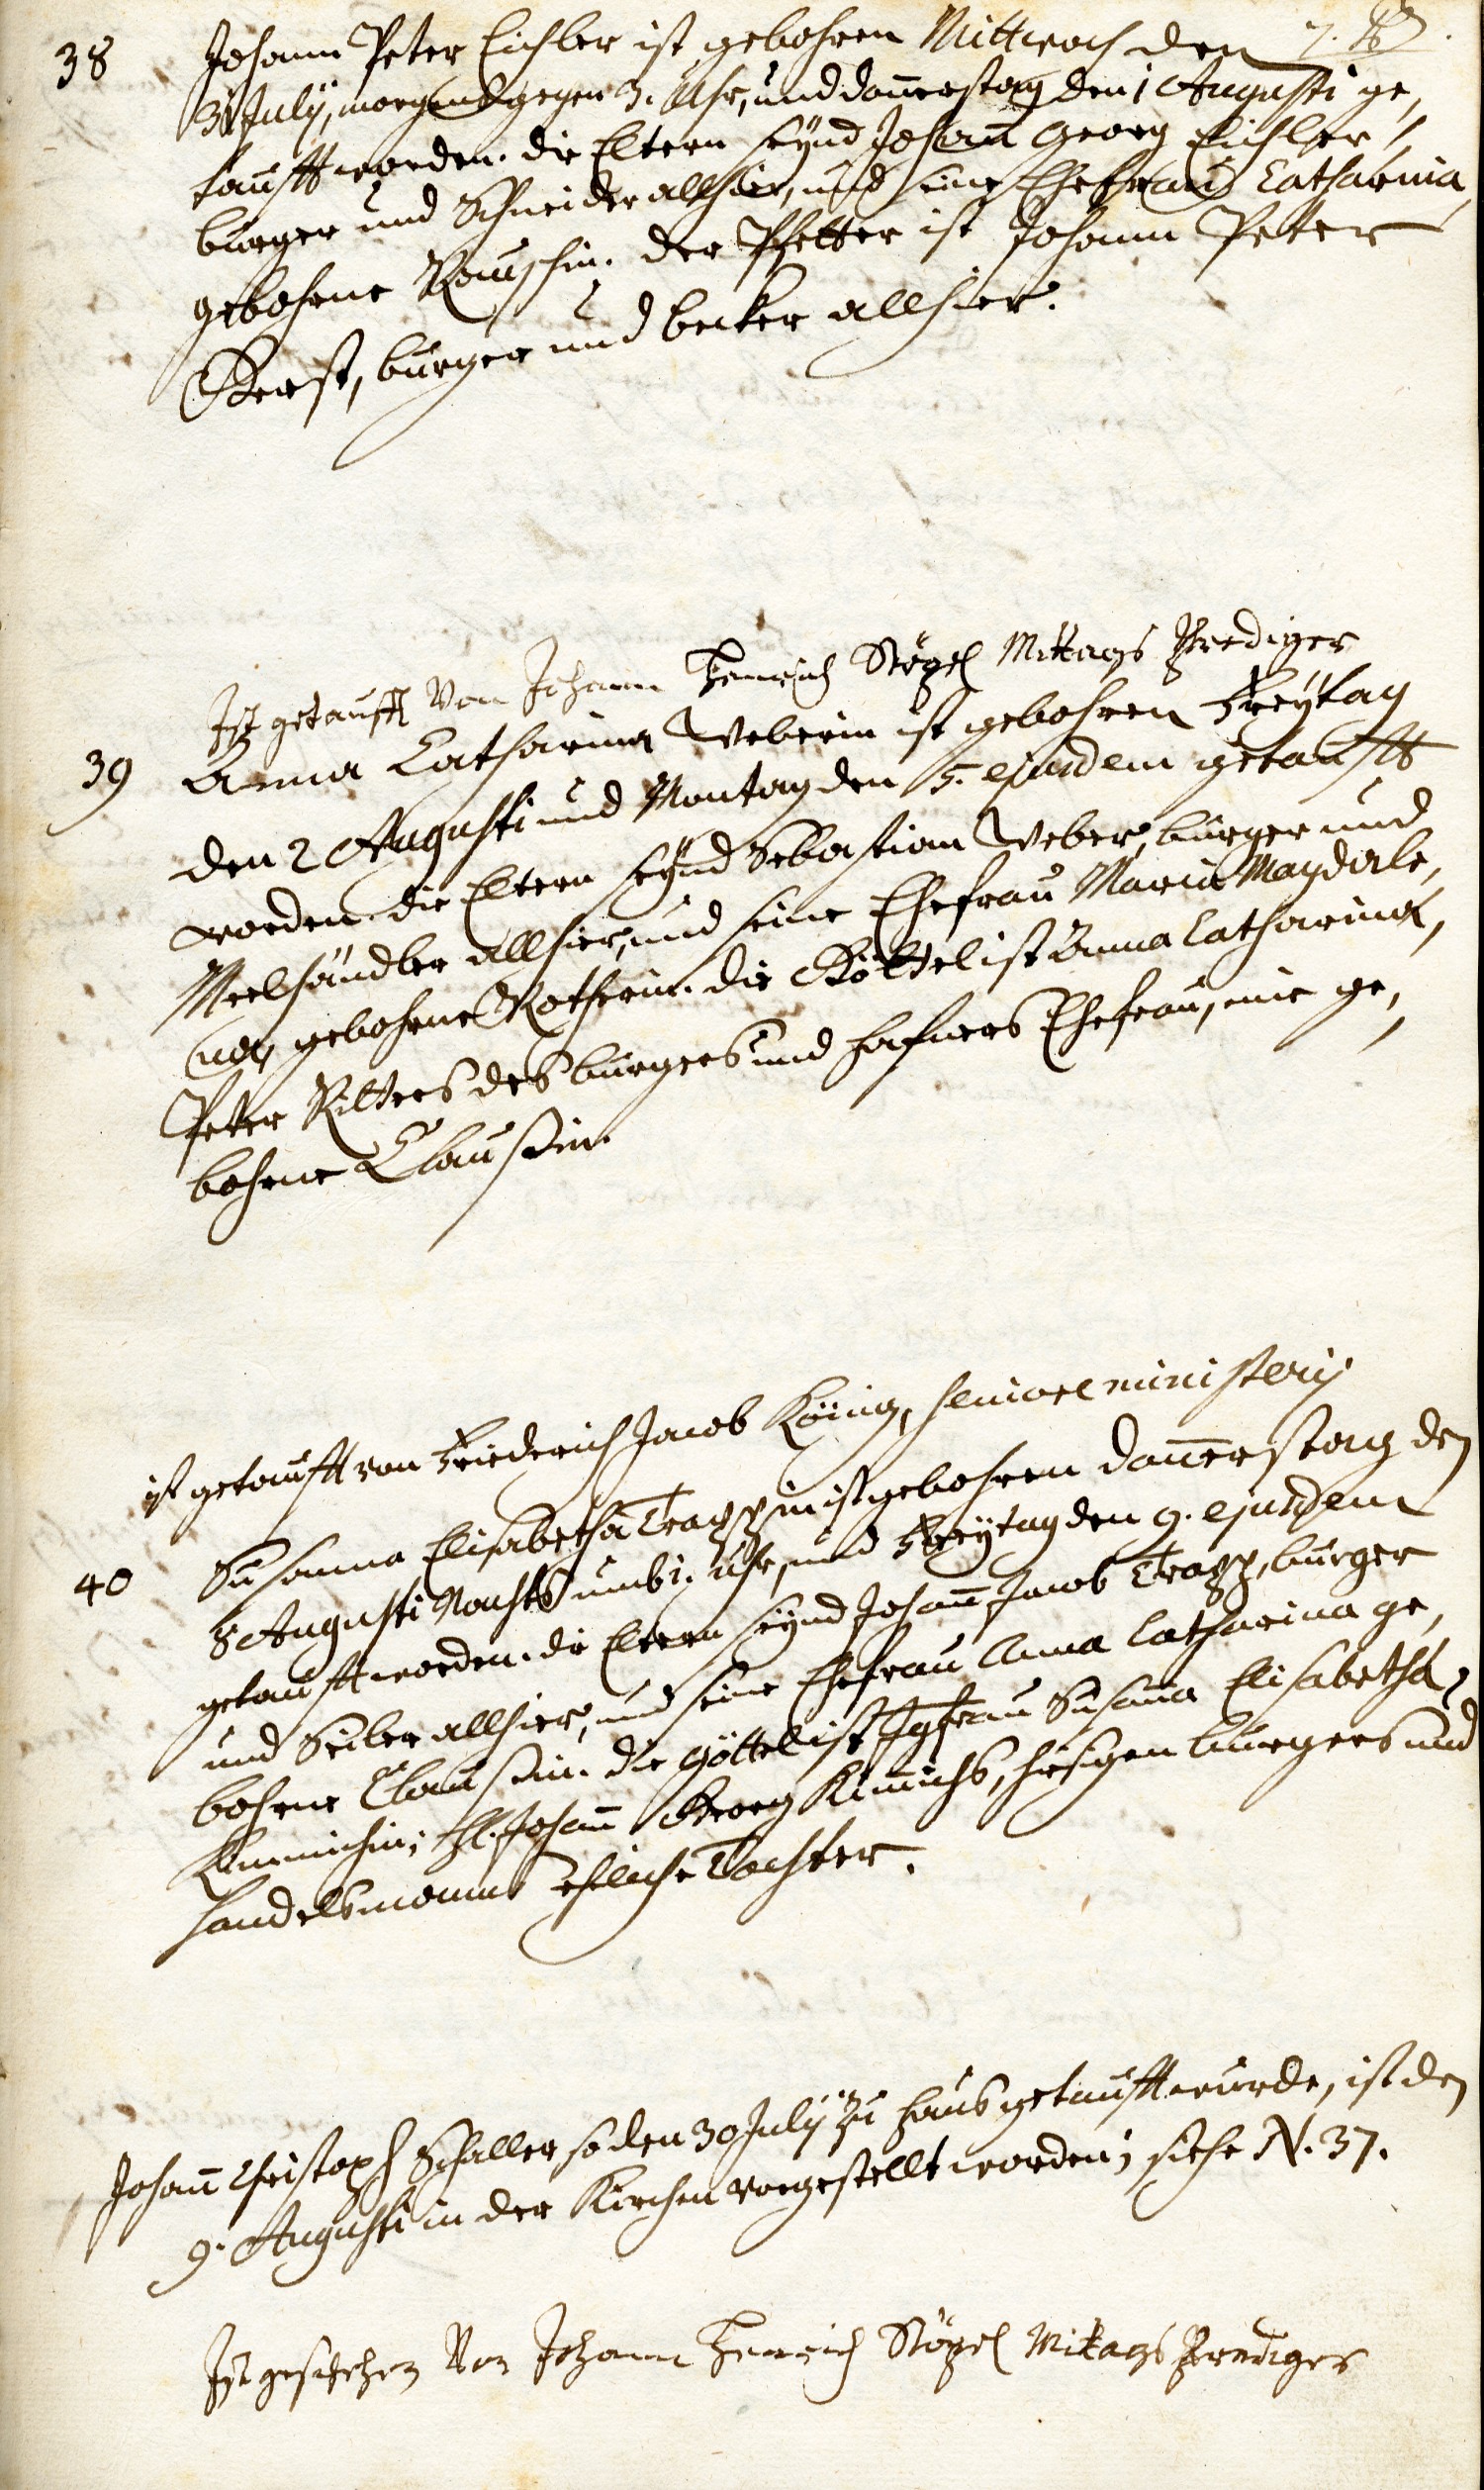 38 Johann Peter Eichler ist gebohren Mittwoch den
31 July, morgends gegen 3. Uhr, und donerstag den 1 Augusti ge,
taufft worden. die Eltern seÿnd Johann Georg Eichler,
burger und Schneider allhier, und seine Ehefrau Catharina,
gebohrne Rauschin. der Pfetter ist Johann Peter
Gerst, burger und becker allhier.
Ist getaufft Von Johann Henrich Mittags Prediger
39 Anna Catharina Weberin ist gebohren Freÿtag
den 2 Augusti und Montag den 5. ejusdem getaufft
worden. die Eltern seÿnd Sebastian Weber, burger und
Meelhändler allhier, und seine Ehefrau Maria Magdale,
na, gebohrne Rotherin. die Göttel ist Anna Catharina,
Peter Ritters des burgers und Hafners Ehefrau, eine ge,
bohrne Claussin.
ist getaufft von Friederich Jacob König, seniore ministerij
40 Susanna Elisabetha Trappin ist gebohren donerstag den
8 Augusti Nachts umb 1. Uhr, und Freÿtag den 9. ejusdem
getaufft worden. die Eltern seÿnd Johann Jacob Trapp, burger
und Seiler allhier, und seine Ehefrau Anna Catharina ge,
bohrne Claussin. die Göttel ist Jgfrau Susanna Elisabetha
Kimmichin, H. Johann Georg Kimichs, hiesigen burgers und
Handelsmanns ehliche Tochter.
Johann Christoph Schaller so den 30 July zu Haus getaufft wurde, ist den
9. Augusti in der Kirchen vorgestellt worden; siehe N. 37.
Ist geschehen Von Johann Henrich Mittags Prediger